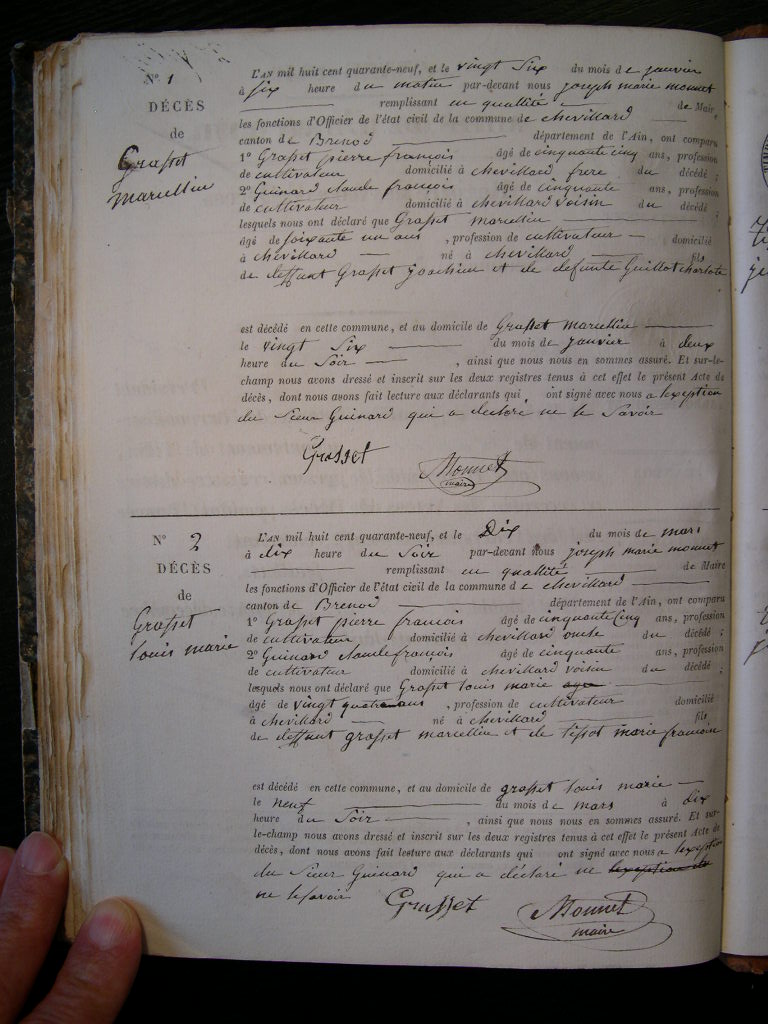 N° 1
DÉCÈS
de
Grasset
marcellin
L'AN mil huit cent quarante-neuf, et le vingt Six du mois de janvier
à Six heure du matin par-devant nous joseph marie monnet
remplissant en quallité de Maire
les fonctions d'Officier de l'état civil de la commune de chevillard
canton de Brenod département de l'Ain, ont comparu
1° Grasset pierre francois âgé de cinquante cinq ans, profession
de cultivateur domicilié à chevillard frere du décédé ;
2° Guinard claude francois âgé de cinquante ans, profession
de cultivateur domicilié à chevillard voisin du décédé ;
lesquels nous ont déclaré que Grasset marcellin
âgé de soixante un ans , profession de cultivateur domicilié
à chevillard né à chevillard fils
de deffunt Grasset joachim et de defunte Guillot charlote
est décédé en cette commune, et au domicile de Grasset marcellin
le vingt Six du mois de janvier à deux
heure du Soir , ainsi que nous nous en sommes assuré. Et sur-le-
champ nous avons dressé et inscrit sur les deux registres tenus à cet effet le présent Acte de
décès, dont nous avons fait lecture aux déclarants qui ont signé avec nous a lexeption
du Sieur Guinard qui a declaré ne le Savoir
Grasset Monnet
maire
N° 2
DÉCÈS
de
Grasset
louis marie
L'AN mil huit cent quarante-neuf, et le Dix du mois de mars
à dix heure du Soir par-devant nous joseph marie monnet
remplissant en quallité de Maire
les fonctions d'Officier de l'état civil de la commune de chevillard
canton de Brenod département de l'Ain, ont comparu
1° Grasset pierre francois âgé de cinquante Cinq ans, profession
de cultivateur domicilié à chevillard oncle du décédé ;
2° Guinard claude francois âgé de cinquante ans, profession
de cultivateur domicilié à chevillard voisin du décédé ;
lesquels nous ont déclaré que Grasset louis marie
âgé de vingt quatre ans , profession de cultivateur domicilié
à chevillard né à chevillard fils
de deffunt grasset marcellin et de tissot marie francoise
est décédé en cette commune, et au domicile de grasset louis marie
le neuf du mois de mars à dix
heure du Soir , ainsi que nous nous en sommes assuré. Et sur-
le-champ nous avons dressé et inscrit sur les deux registres tenus à cet effet le présent Acte de
décès, dont nous avons fait lecture aux déclarants qui ont signé avec nous a lexeption
du Sieur Guinard qui a déclaré ne lexeption de
ne le savoir Grasset Monnet
maire